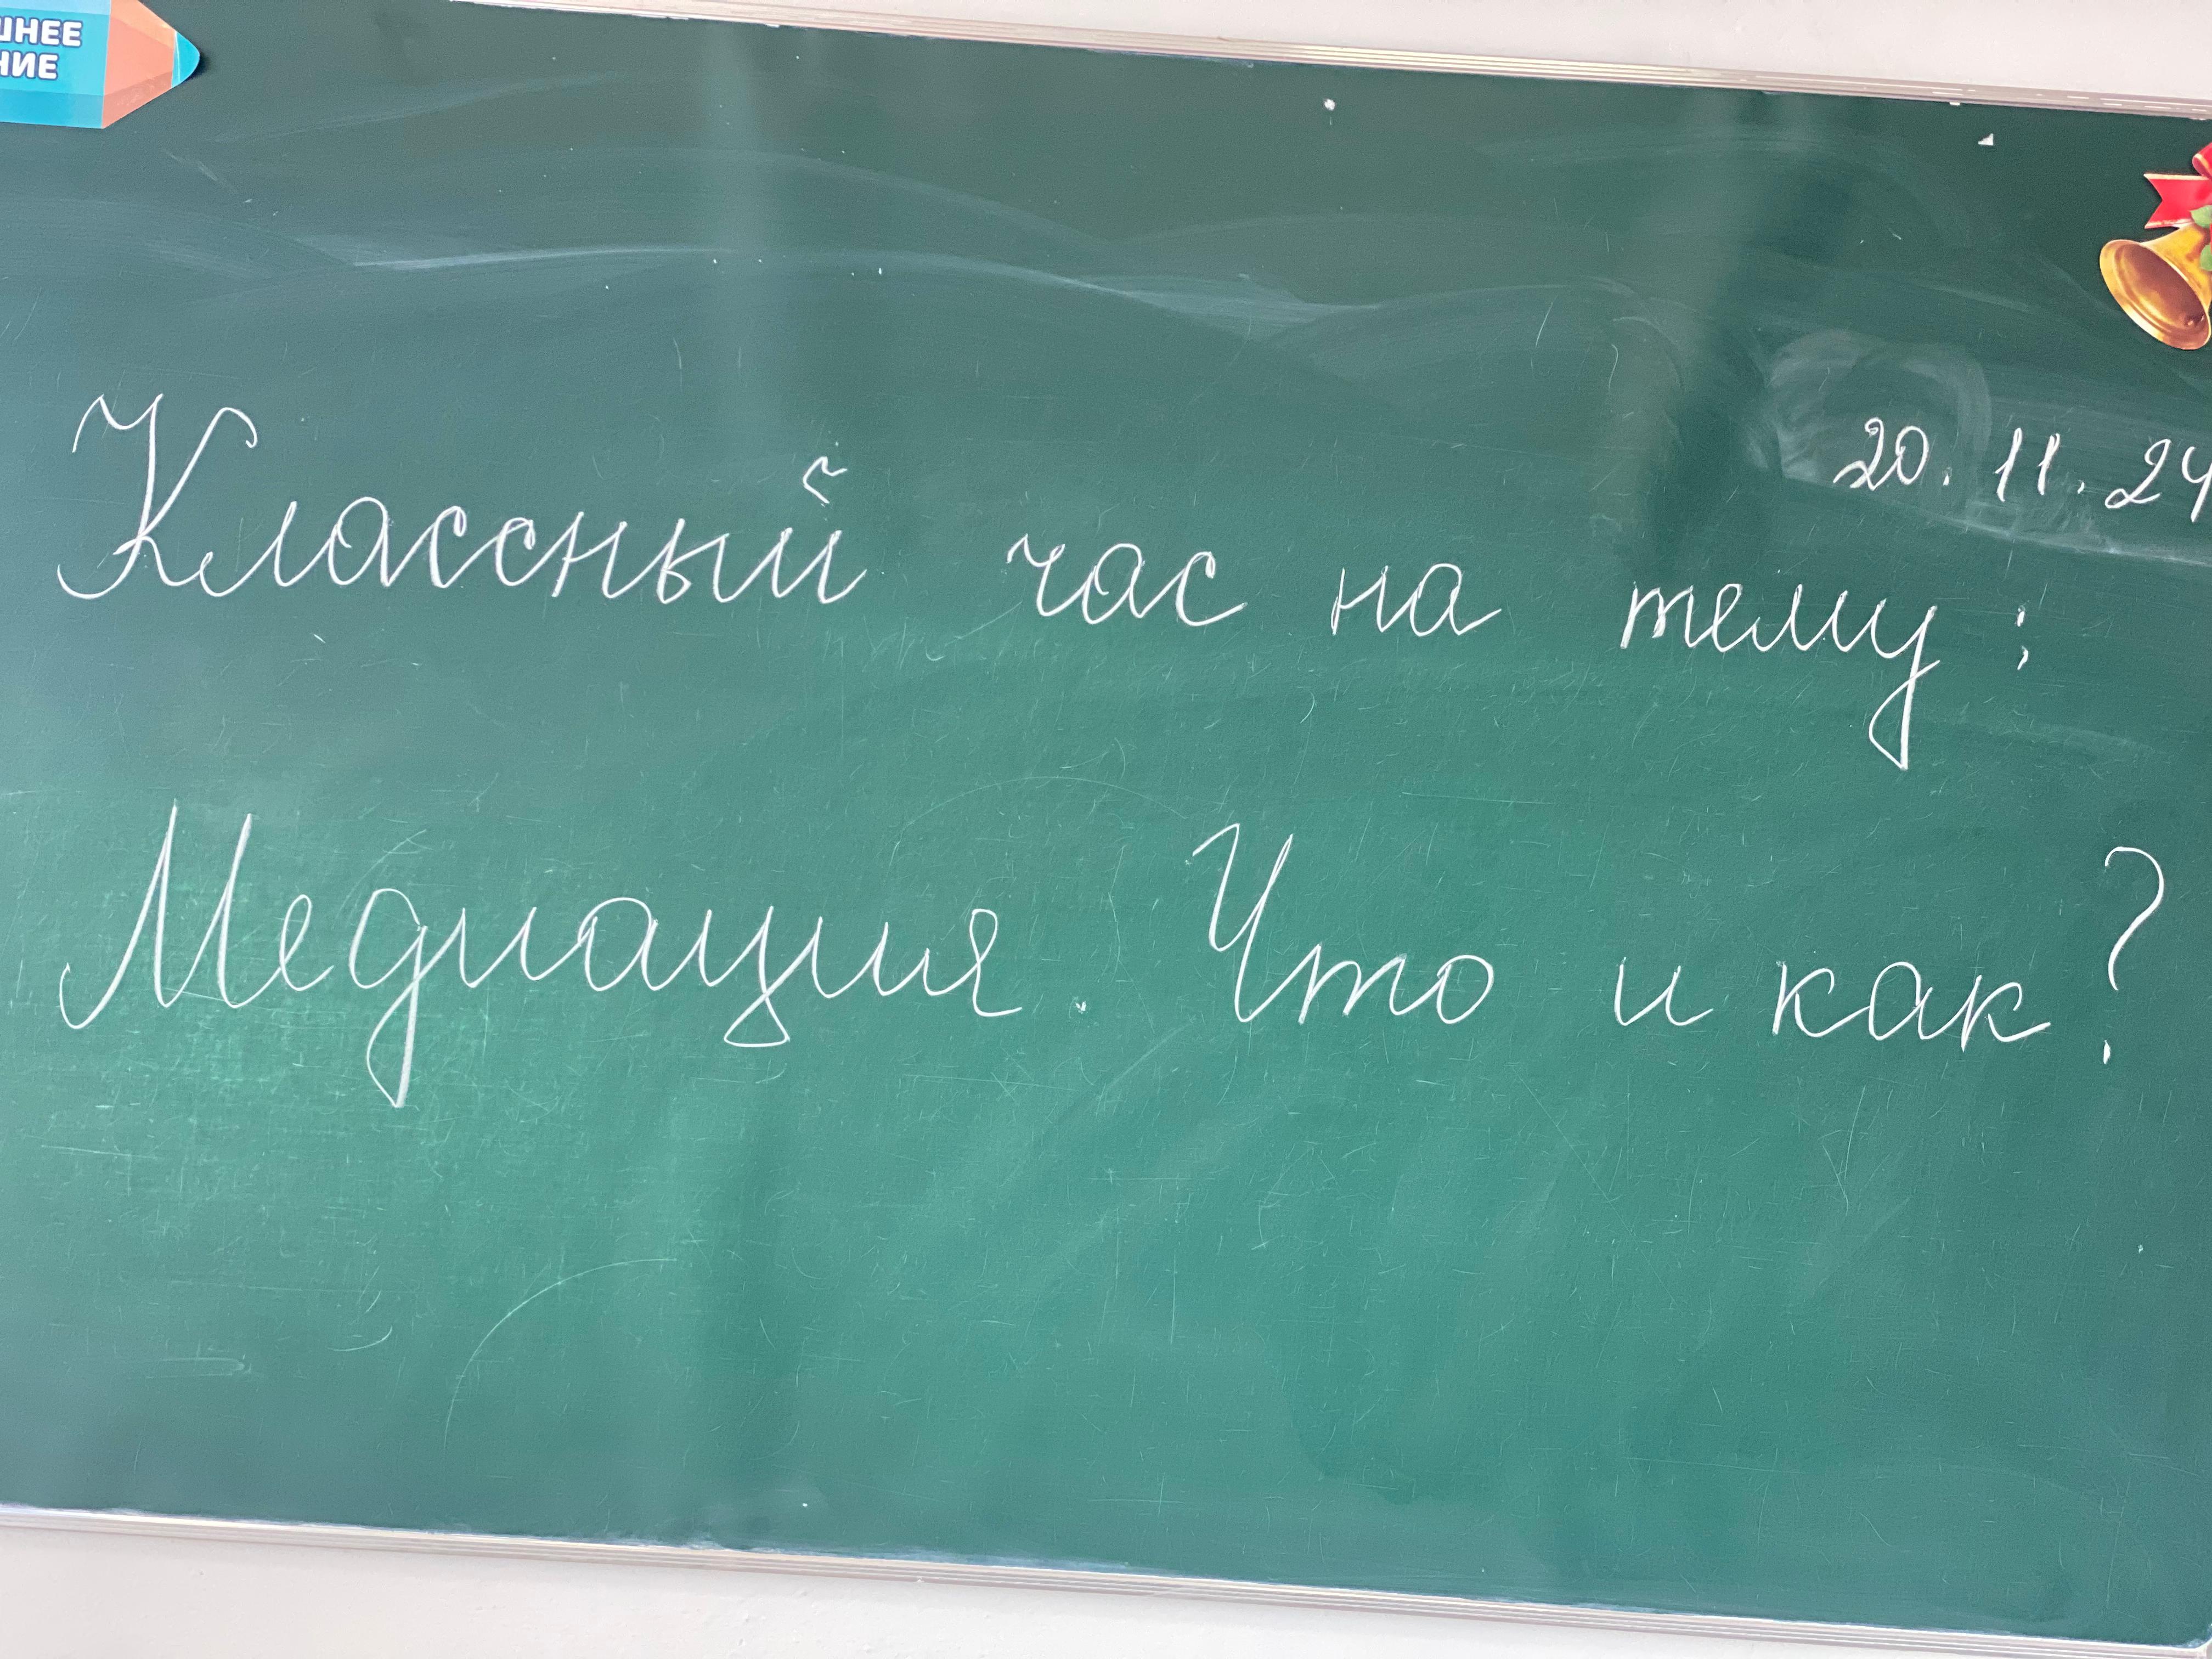 ШНЕЕ
НИЕ
20.11.24
Классный час на тему:
Медиация. Что и как?